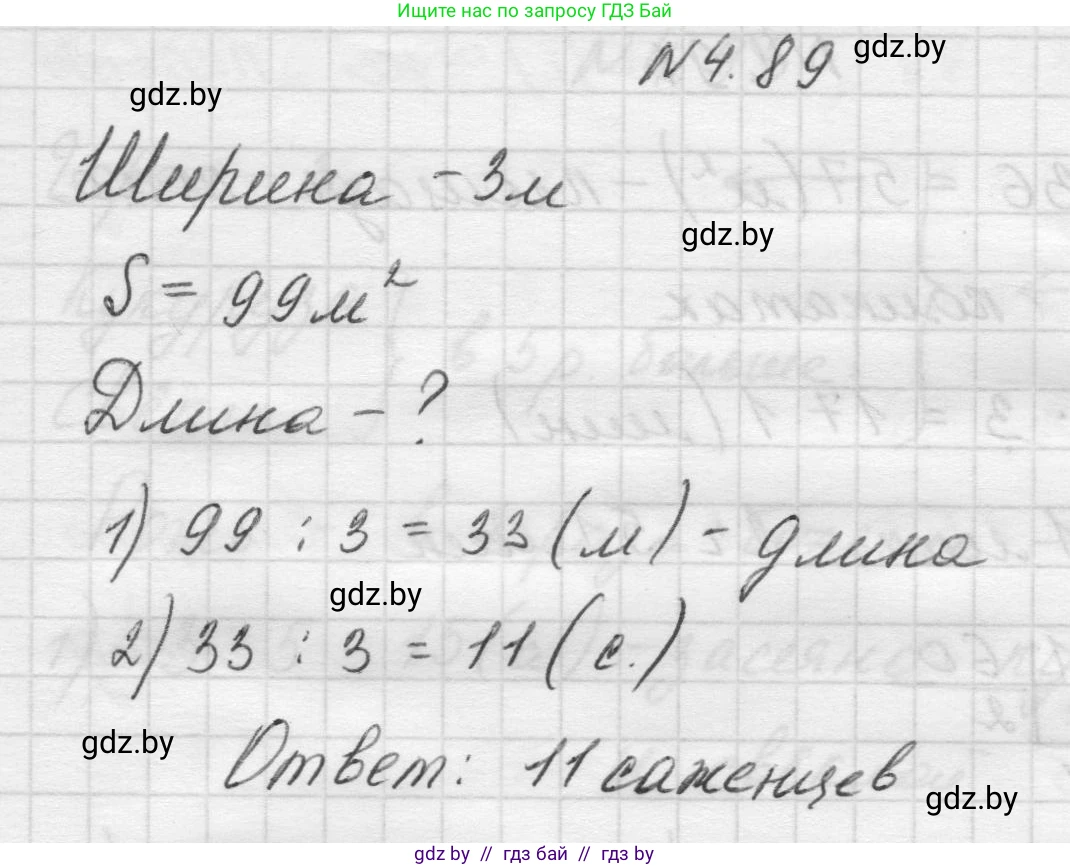 Ищите нас по запросу ГДЗ Бай
N 4.89
gdz.by
gdz.by
Ширина - 3м
gdz.by
S = 99м²
Длина - ?
1) 99 : 3 = 33 (м) - длина
gdz.by
2) 33 : 3 = 11 (с.)
gdz.by
Ответ: 11 саженцев
gdz.by
gdz by // гдз бай // гдз by